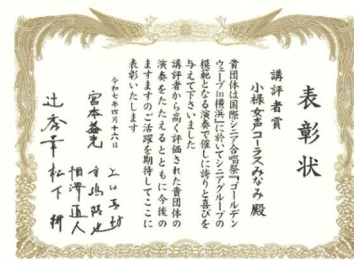 表彰状
講評者賞
小禄女声コーラスみなみ 殿
貴団体は国際シニア合唱祭「ゴールデン
ウェーブin横浜」に於いてシニアグループの
模範となる演奏で催しに誇りと喜びを
与えて下さいました
講評者から高く評価された貴団体の
演奏をたたえるとともに今後の
ますますのご活躍を期待してここに
表彰いたします
令和七年四月十六日
宮本益光
相澤直人
辻秀幸
松下耕